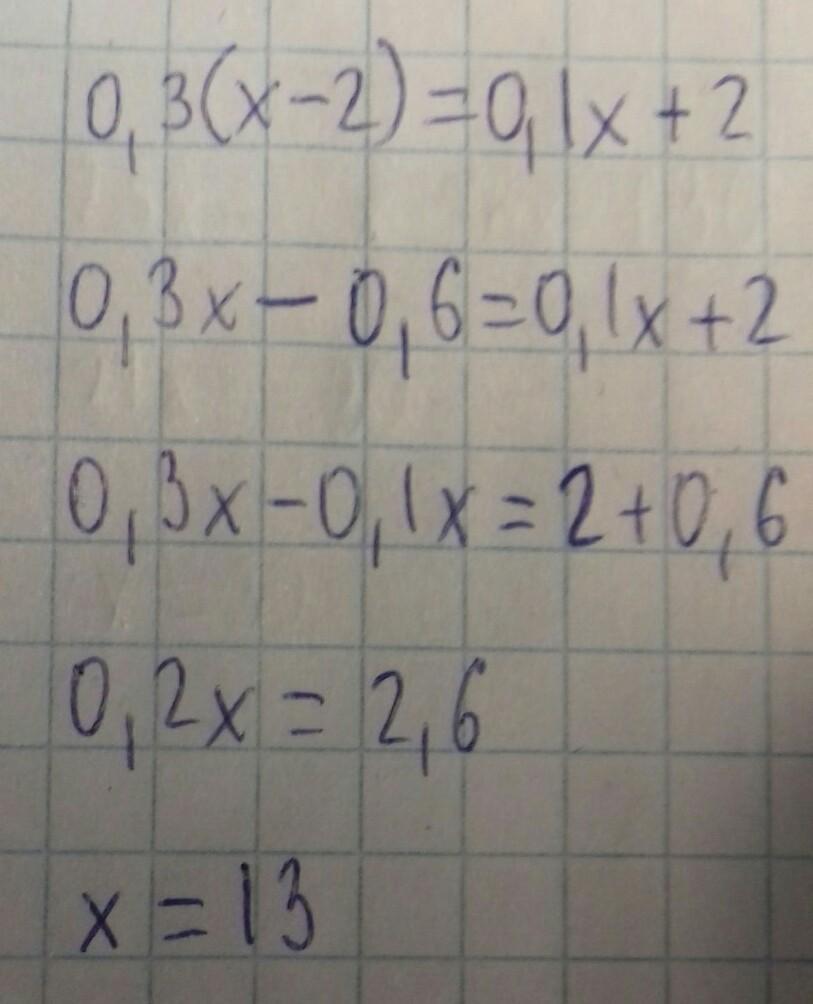 0,3(x-2)=0,1x+2
0,3x-0,6=0,1x+2
0,3x-0,1x=2+0,6
0,2x=2,6
x=13